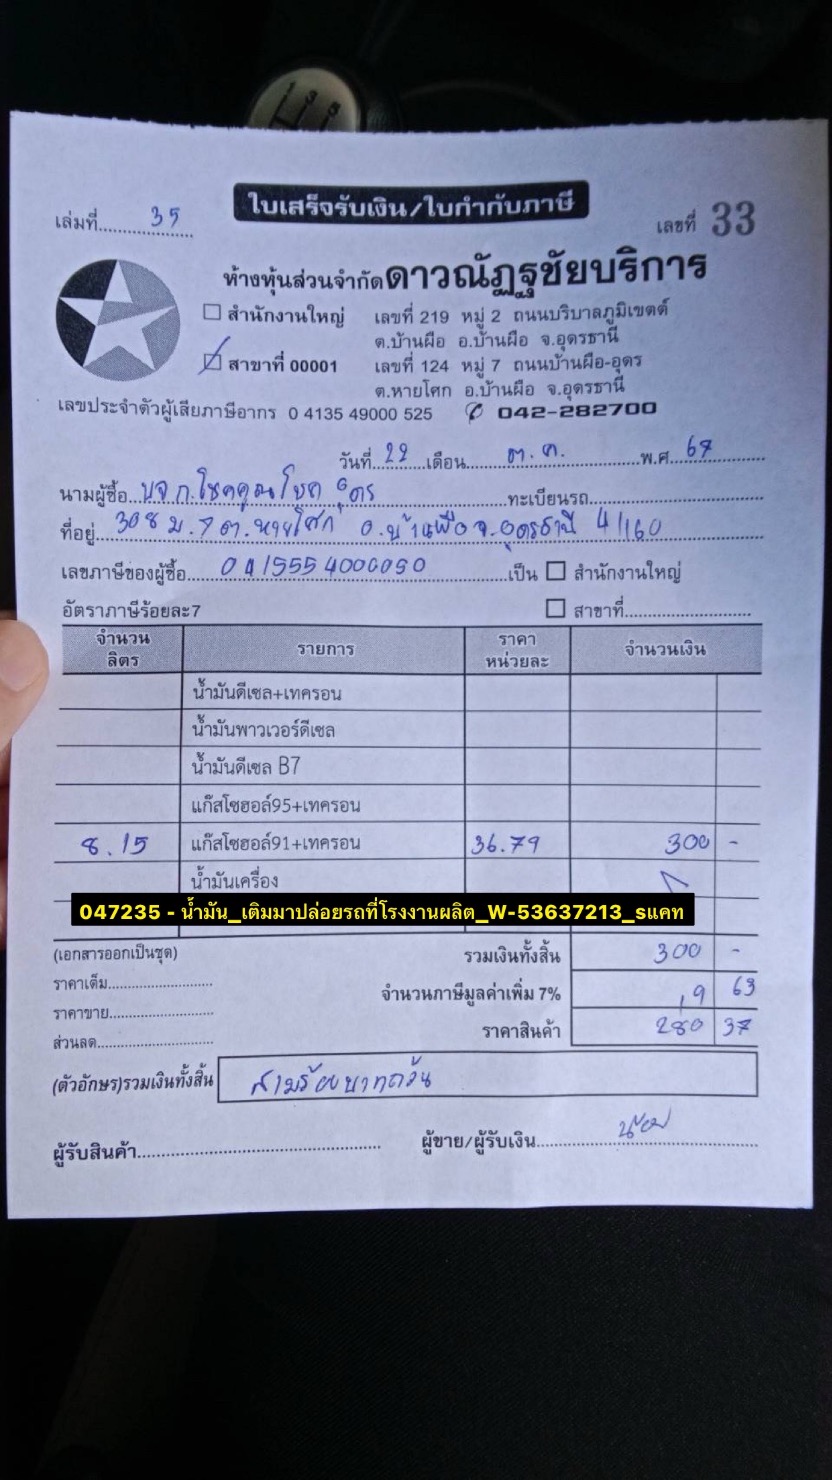 ใบเสร็จรับเงิน/ใบกำกับภาษี
เล่มที่ 35
เลขที่ 33
ห้างหุ้นส่วนจำกัดดาวณัฏฐชัยบริการ
สำนักงานใหญ่ เลขที่ 219 หมู่ 2 ถนนบริบาลภูมิเขตต์
ต.บ้านผือ อ.บ้านผือ จ.อุดรธานี
สาขาที่ 00001 เลขที่ 124 หมู่ 7 ถนนบ้านผือ-อุดร
ต.หายโศก อ.บ้านผือ จ.อุดรธานี
เลขประจำตัวผู้เสียภาษีอากร 0 4135 49000 525 042-282700
วันที่ 22 เดือน ต.ค. พ.ศ. 67
นามผู้ซื้อ บจก.โชคคูณโชค อุดร ทะเบียนรถ
ที่อยู่ 308 ม.7 ต.หายโศก อ.บ้านผือ จ.อุดรธานี 41160
เลขภาษีของผู้ซื้อ 0415554000050 เป็น สำนักงานใหญ่
อัตราภาษีร้อยละ7 สาขาที่
จำนวน ลิตร รายการ ราคา หน่วยละ จำนวนเงิน
น้ำมันดีเซล+เทครอน
น้ำมันพาวเวอร์ดีเซล
น้ำมันดีเซล B7
แก๊สโซฮอล์95+เทครอน
8.15 แก๊สโซฮอล์91+เทครอน 36.79 300 -
น้ำมันเครื่อง
047235 - น้ำมัน_เติมมาปล่อยรถที่โรงงานผลิต_W-53637213_sแคท
(เอกสารออกเป็นชุด) รวมเงินทั้งสิ้น 300 -
ราคาเต็ม
จำนวนภาษีมูลค่าเพิ่ม 7% 19 63
ราคาขาย
ราคาสินค้า 280 37
ส่วนลด
(ตัวอักษร)รวมเงินทั้งสิ้น สามร้อยบาทถ้วน
ผู้รับสินค้า ผู้ขาย/ผู้รับเงิน